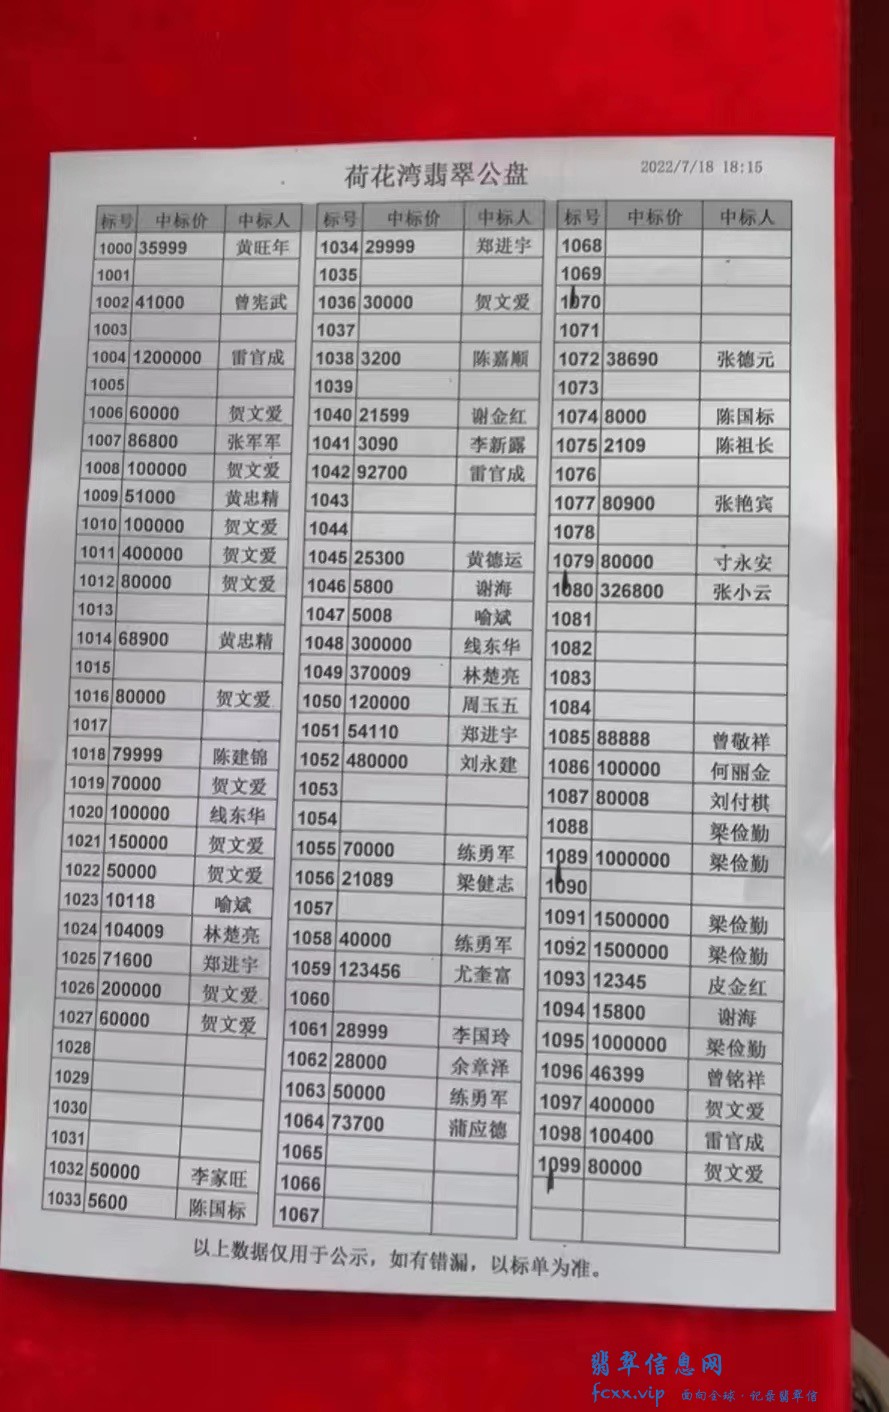 荷花湾翡翠公盘
2022/7/18 18:15
标号 中标价 中标人 标号 中标价 中标人 标号 中标价 中标人
1000 35999 黄旺年 1034 29999 郑进宇 1068
1001 1035 1069
1002 41000 曾宪武 1036 30000 贺文爱 1070
1003 1037 1071
1004 1200000 雷官成 1038 3200 陈嘉顺 1072 38690 张德元
1005 1039 1073
1006 60000 贺文爱 1040 21599 谢金红 1074 8000 陈国标
1007 86800 张军军 1041 3090 李新露 1075 2109 陈祖长
1008 100000 贺文爱 1042 92700 雷官成 1076
1009 51000 黄忠精 1043 1077 80900 张艳宾
1010 100000 贺文爱 1044 1078
1011 400000 贺文爱 1045 25300 黄德运 1079 80000 寸永安
1012 80000 贺文爱 1046 5800 谢海 1080 326800 张小云
1013 1047 5008 喻斌 1081
1014 68900 黄忠精 1048 300000 线东华 1082
1015 1049 370009 林楚亮 1083
1016 80000 贺文爱 1050 120000 周玉五 1084
1017 1051 54110 郑进宇 1085 88888 曾敬祥
1018 79999 陈建锦 1052 480000 刘永建 1086 100000 何丽金
1019 70000 贺文爱 1053 1087 80008 刘付棋
1020 100000 线东华 1054 1088 梁俭勤
1021 150000 贺文爱 1055 70000 练勇军 1089 1000000 梁俭勤
1022 50000 贺文爱 1056 21089 梁健志 1090
1023 10118 喻斌 1057 1091 1500000 梁俭勤
1024 104009 林楚亮 1058 40000 练勇军 1092 1500000 梁俭勤
1025 71600 郑进宇 1059 123456 尤奎富 1093 12345 皮金红
1026 200000 贺文爱 1060 1094 15800 谢海
1027 60000 贺文爱 1061 28999 李国玲 1095 1000000 梁俭勤
1028 1062 28000 余章泽 1096 46399 曾铭祥
1029 1063 50000 练勇军 1097 400000 贺文爱
1030 1064 73700 蒲应德 1098 100400 雷官成
1031 1065 1099 80000 贺文爱
1032 50000 李家旺 1066
1033 5600 陈国标 1067
以上数据仅用于公示，如有错漏，以标单为准。
翡翠信息网
fcxx.vip 面向全球·记录翡翠信